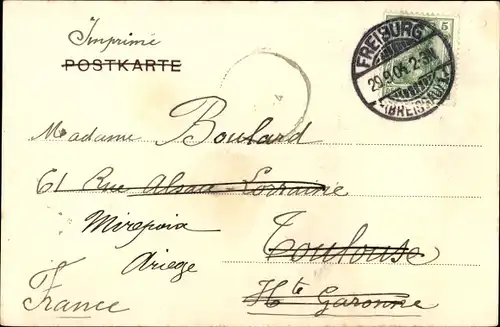 Imprimé
POSTKARTE
5
FREIBURG
29.9.04. 2-3N
(BREISGAU)
Madame Boulard
61 Rue Alsace-Lorraine
Mirepoix
Toulouse
Ariege
Hte Garonne
France